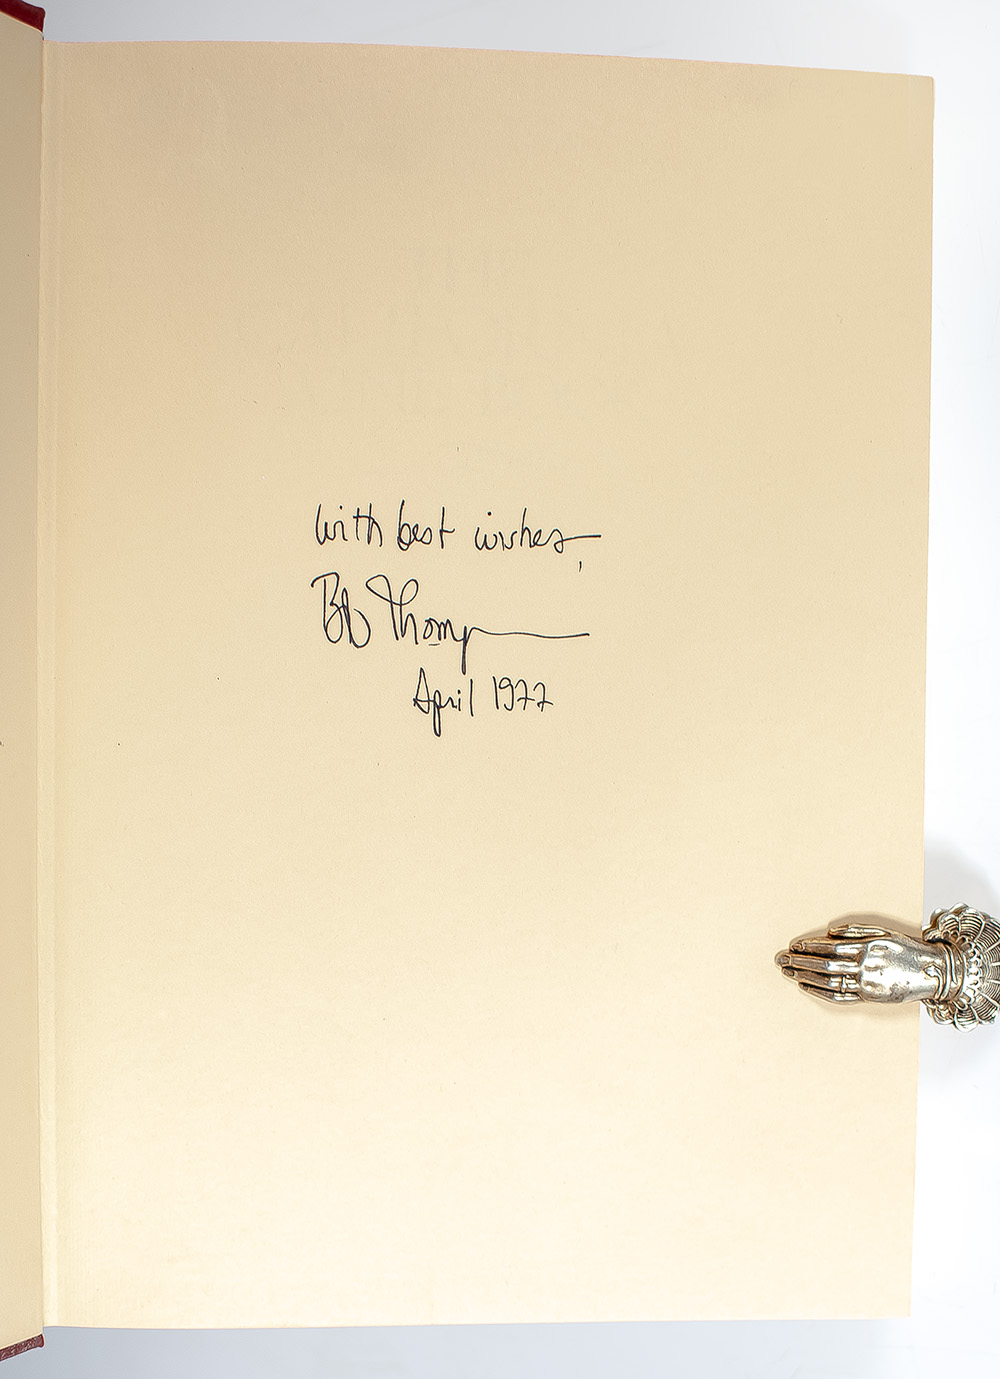 With best wishes,
Bob Thompson
April 1977